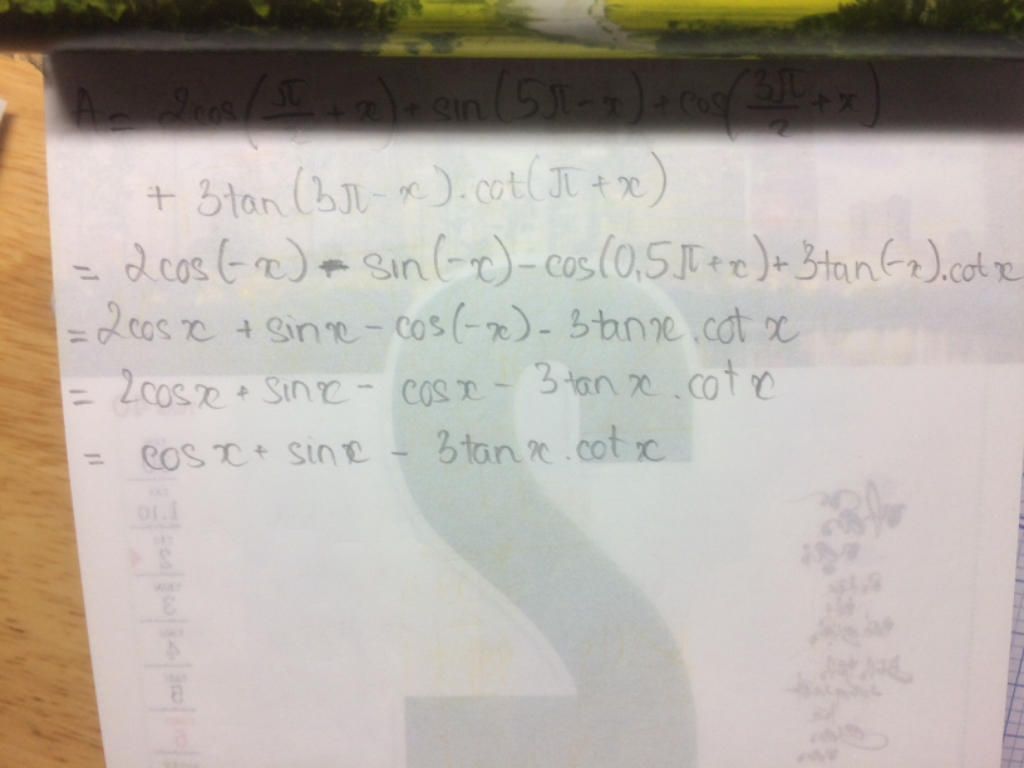 A = 2cos(π/2 + x) + sin(5π - x) + cos(3π/2 + x)
+ 3tan(3π - x).cot(π + x)
= 2cos(-x) - sin(-x) - cos(0,5π + x) + 3tan(-x).cotx
= 2cosx + sinx - cos(-x) - 3tanx.cotx
= 2cosx + sinx - cosx - 3tanx.cotx
= cosx + sinx - 3tanx.cotx
1.10
2
3
4
5
6